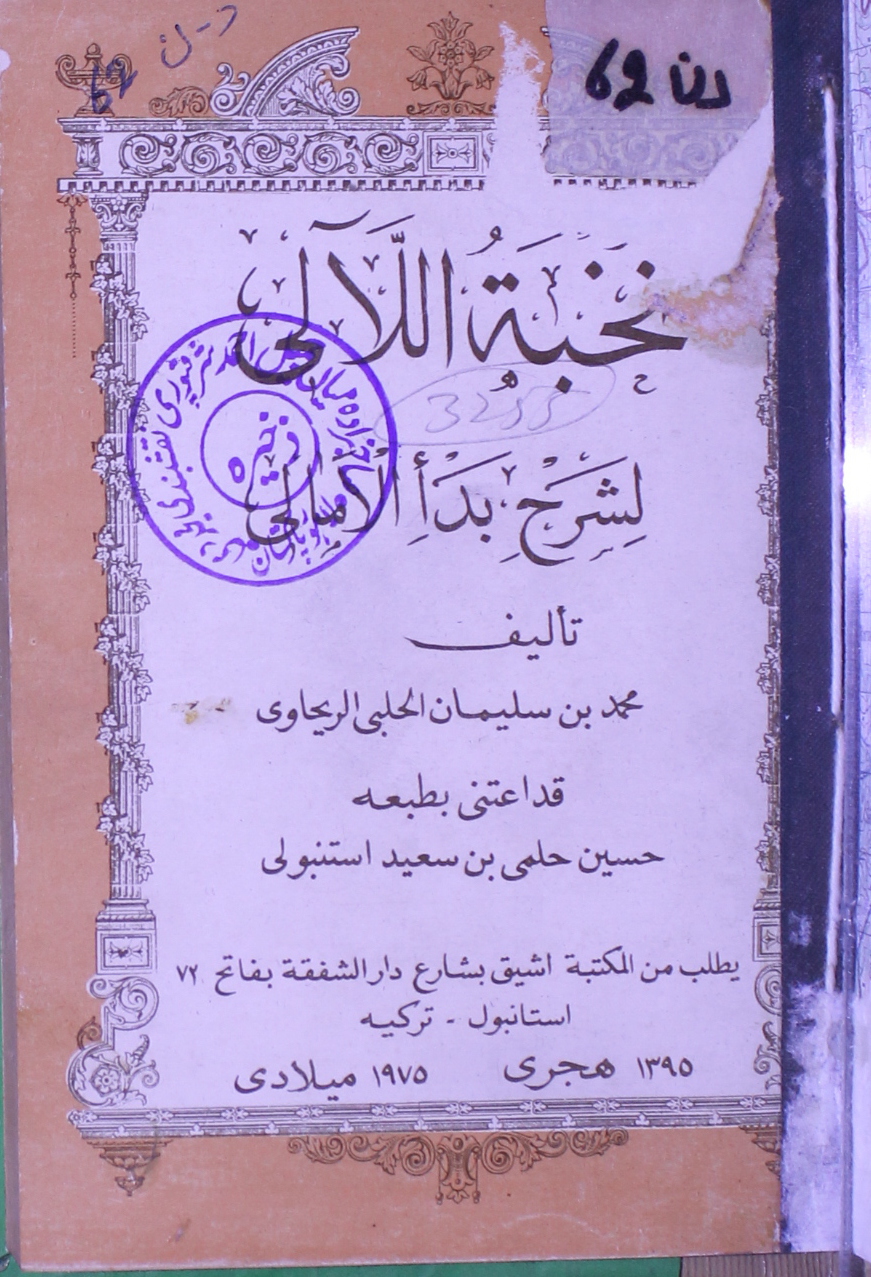 د-ن 62
دن 62
نُخْبَةُ اللَّآلِي
لِشَرْحِ بَدَأِ الْأَمَالِي
ذخیرہ
تأليف
محمد بن سليمان الحلبى الريحاوى
قد اعتنى بطبعه
حسين حلمى بن سعيد استنبولى
يطلب من المكتبة اشيق بشارع دار الشفقة بفاتح ٧٢
استانبول - تركيه
١٣٩٥ هجرى ١٩٧٥ ميلادى